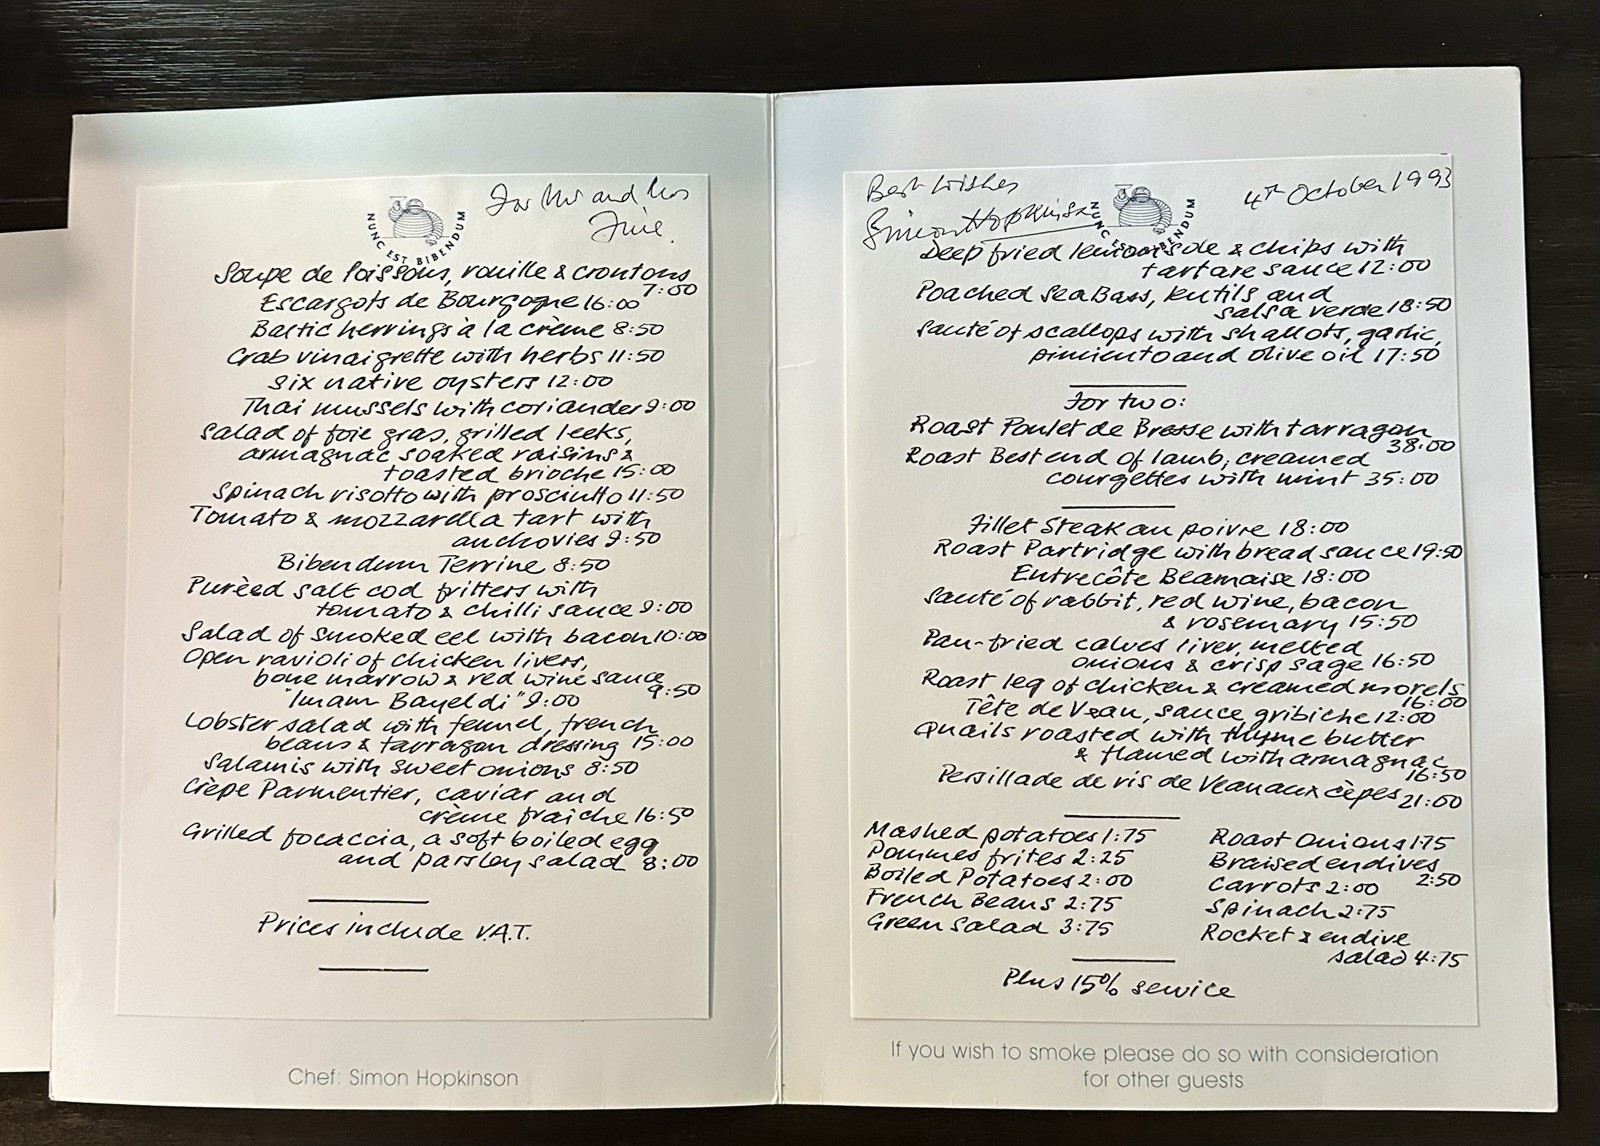 For Mr and Mrs
NUNC EST BIBENDUM
Soupe de Poissons, rouille & croutons
7:00
Escargots de Bourgogne 16:00
Baltic herrings à la crème 8:50
Crab vinaigrette with herbs 11:50
Six native oysters 12:00
Thai mussels with coriander 9:00
Salad of foie gras, grilled leeks,
armagnac soaked raisins &
toasted brioche 15:00
Spinach risotto with prosciutto 11:50
Tomato & mozzarella tart with
anchovies 9:50
Bibendum Terrine 8:50
Purèed salt cod fritters with
tomato & chilli sauce 9:00
Salad of smoked eel with bacon 10:00
Open ravioli of chicken livers,
bone marrow & red wine sauce
9:50
"Imam Bayeldi" 9:00
Lobster salad with fennel, french
beans & tarragon dressing 15:00
Salamis with sweet onions 8:50
Crèpe Parmentier, caviar and
crème fraîche 16:50
Grilled focaccia, a soft boiled egg
and parsley salad 8:00
Prices include V.A.T.
Chef: Simon Hopkinson
Best Wishes
Simon Hopkinson
NUNC EST BIBENDUM
4th October 1993
Deep fried lemon sole & chips with
tartare sauce 12:00
Poached Sea Bass, lentils and
salsa verde 18:50
Sauté of scallops with shallots, garlic,
pimiento and olive oil 17:50
For two:
Roast Poulet de Bresse with tarragon
38:00
Roast Best end of lamb, creamed
courgettes with mint 35:00
Fillet Steak au poivre 18:00
Roast Partridge with bread sauce 19:50
Entrecôte Bearnaise 18:00
Sauté of rabbit, red wine, bacon
& rosemary 15:50
Pan-fried calves liver, melted
onions & crisp sage 16:50
Roast leg of chicken & creamed morels
16:00
Tête de Veau, sauce gribiche 12:00
Quails roasted with thyme butter
& flamed with armagnac
16:50
Persillade de ris de Veau aux cèpes
21:00
Mashed potatoes 1:75
Pommes frites 2:25
Boiled Potatoes 2:00
French Beans 2:75
Green Salad 3:75
Roast Onions 1:75
Braised endives
2:50
Carrots 2:00
Spinach 2:75
Rocket & endive
salad 4:75
Plus 15% service
If you wish to smoke please do so with consideration
for other guests